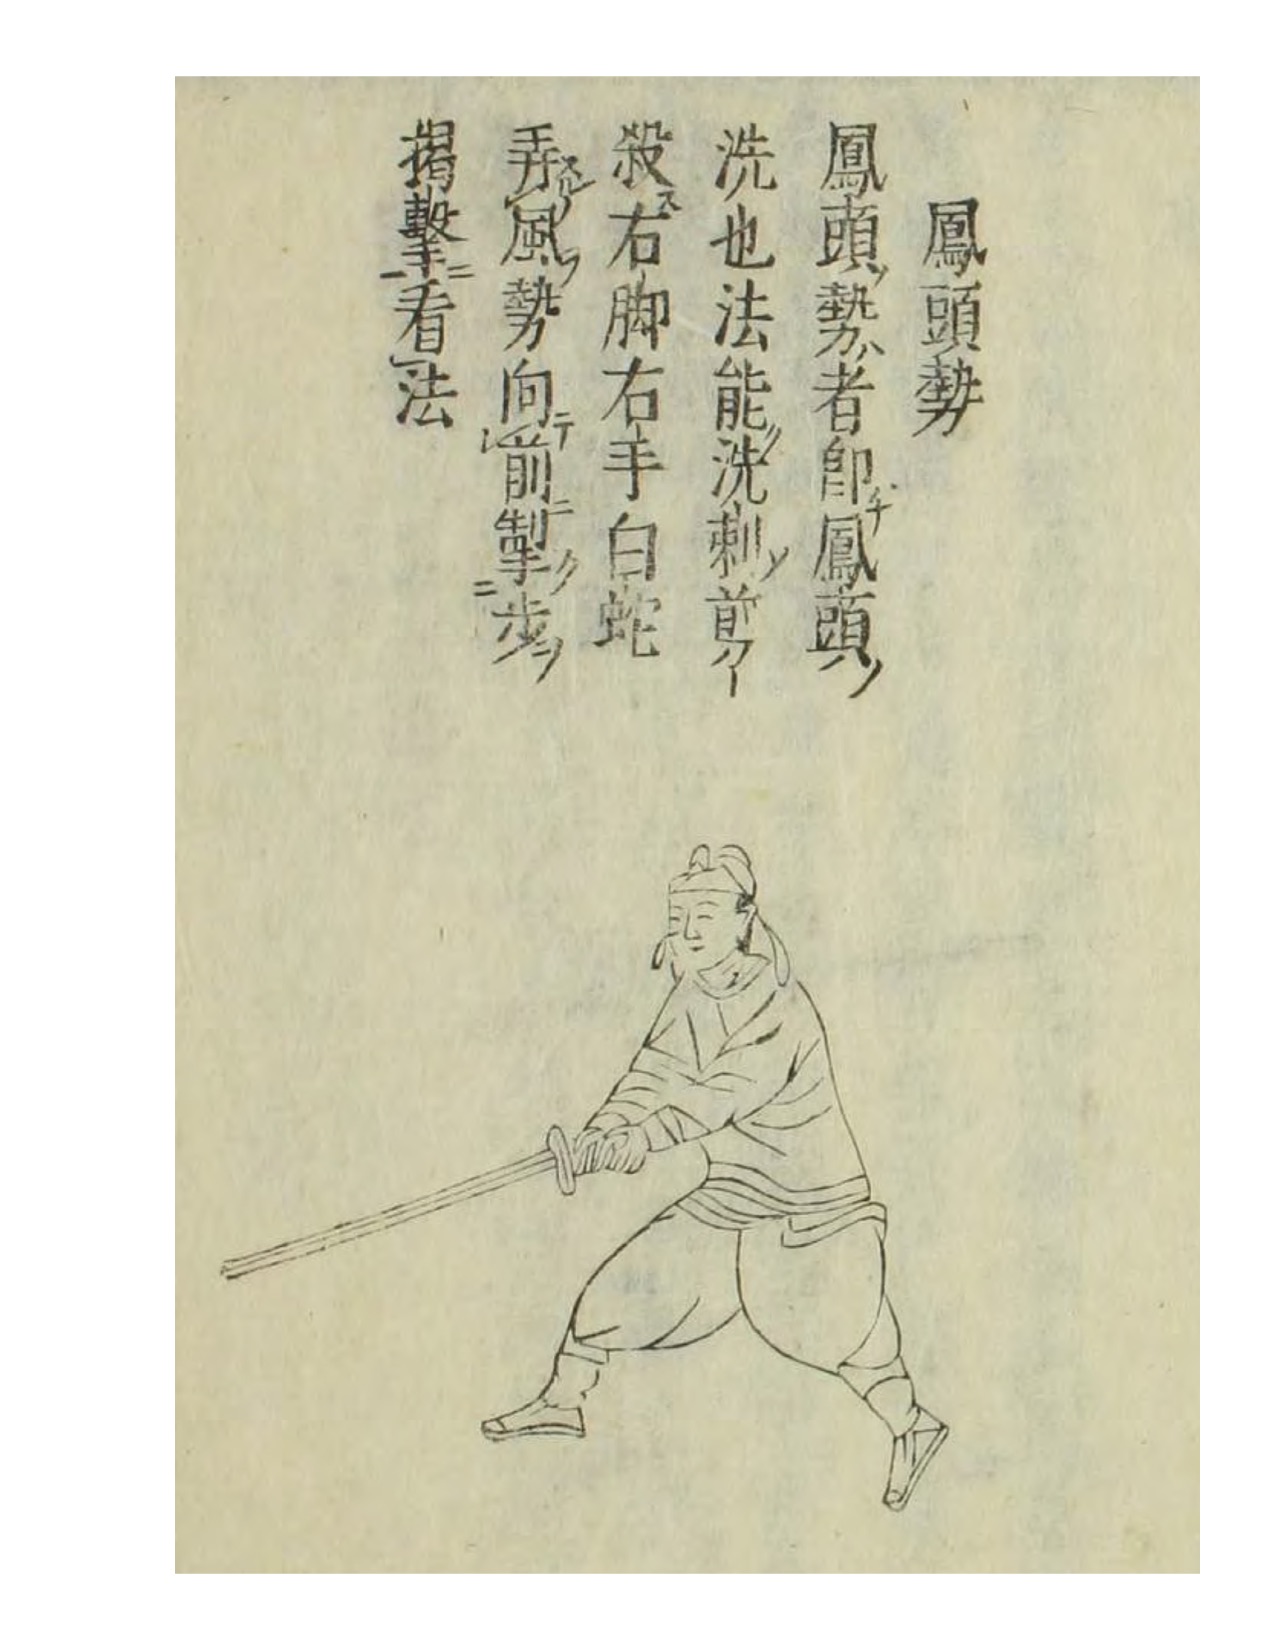 鳳頭勢
鳳頭勢者即鳳頭
洗也法能洗刺剪
殺右脚右手白蛇
弄風勢向前掣步
揭擊看法